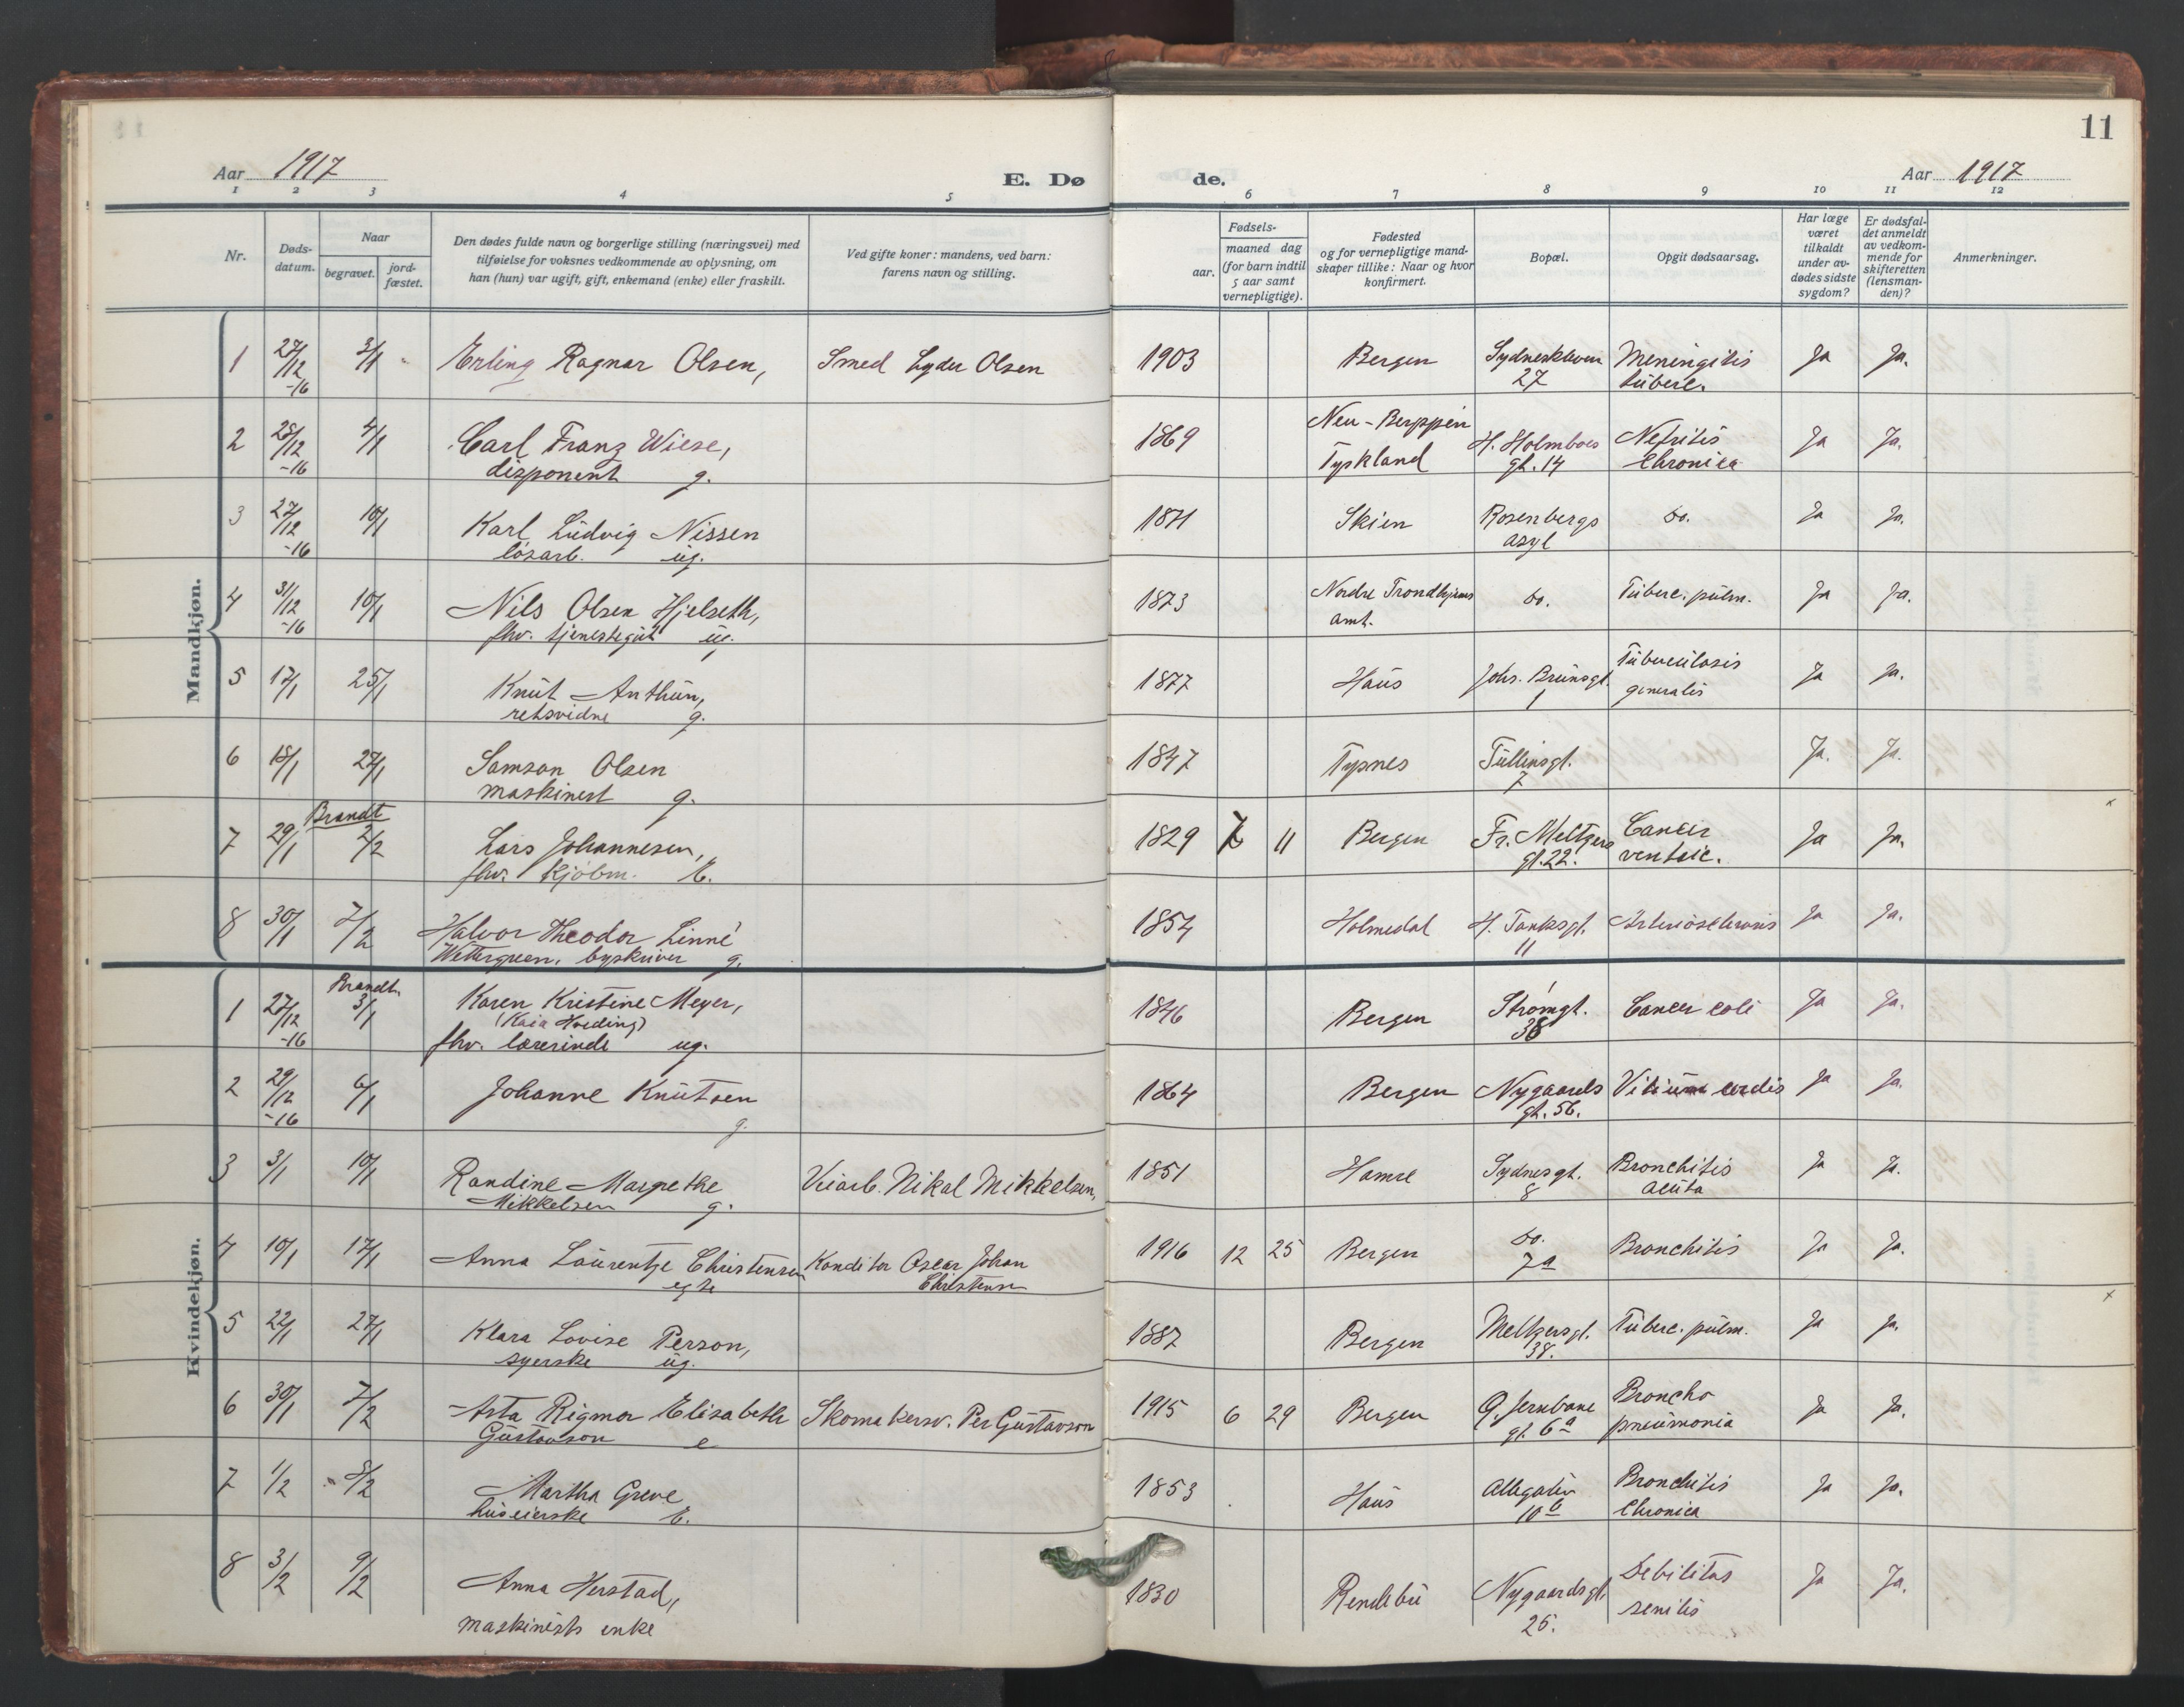 11
Aar 1917
E. Dø
de.
Aar 1917
1 2 3 4 5 6 7 8 9 10 11 12
Nr.
Døds-
datum.
Naar
begravet.
jord-
fæstet.
Den dødes fulde navn og borgerlige stilling (næringsvei) med
tilføielse for voksnes vedkommende av oplysning, om
han (hun) var ugift, gift, enkemand (enke) eller fraskilt.
Ved gifte koner: mandens, ved barn:
farens navn og stilling.
aar.
Fødsels-
maaned dag
(for barn indtil
5 aar samt
vernepligtige).
Fødested
og for vernepligtige mand-
skaper tillike: Naar og hvor
konfirmert.
Bopæl.
Opgit dødsaarsag.
Har læge
været
tilkaldt
under av-
dødes sidste
sygdom?
Er dødsfal-
det anmeldt
av vedkom-
mende for
skifteretten
(lensman-
den)?
Anmerkninger.
Mandkjøn.
1 27/12 -16 3/1 Erling Ragnar Olsen, Smed Lyder Olsen 1903 Bergen Sydneskleven 27 Meningitis tuberc. Ja Ja.
2 28/12 -16 4/1 Carl Franz Wiese, disponent g. 1869 Neu-Berppin Tyskland H. Holmboes gt. 14 Nefritis Chronica Ja Ja.
3 27/12 -16 10/1 Karl Ludvig Nissen løsarb. ug. 1871 Skien Rosenbergs asyl do. Ja Ja.
4 31/12 -16 10/1 Nils Olsen Hjelseth, fhv. tjenestegut ug. 1873 Nordre Trondhjems amt. do. Tuberc. pulm. Ja Ja.
5 17/1 25/1 Knut Anthun, retsvidne g. 1877 Haus Johs. Brunsgt. 1 Tuberculosis generalis Ja Ja.
6 18/1 27/1 Samson Olsen maskinist g. 1847 Tysnes Tullinsgt. 7 Ja. Ja.
7 29/1 Brandt 2/2 Lars Johannesen, fhv. kjøbm. E. 1829 7 11 Bergen Fr. Meltzers gt. 22. Cancer ventric. Ja Ja.
8 30/1 7/2 Halvor Theodor Linné Wettergreen, byskriver g. 1854 Holmedal H. Tanksgt. 11 Arteriosclerosis Ja Ja.
Kvindekjøn.
1 27/12 -16 Brandt. 3/1 Karen Kristine Meyer, (Kaia Hveding) fhv. lærerinde ug. 1846 Bergen Strømgt. 38 Cancer coli Ja Ja.
2 29/12 -16 6/1 Johanne Knutsen g. 1864 Bergen Nygaards gt. 56. Vitium cordis Ja Ja.
3 3/1 10/1 Randine Margrethe Mikkelsen g. Veiarb. Nikal Mikkelsen, 1851 Hamre Sydnesgt. 8 Bronchitis acuta Ja Ja.
4 10/1 17/1 Anna Laurentze Christensen egte Konditor Oscar Johan Christensen 1916 12 25 Bergen do. 7a Bronchitis Ja Ja.
5 22/1 27/1 Klara Lovise Person, syerske ug. 1887 Bergen Meltzersgt. 38. Tuberc. pulm. Ja Ja.
6 30/1 7/2 Asta Rigmor Elisabeth Gustavson e Skomakersv. Per Gustavson 1915 6 29 Bergen G. Jernbane gt. 6a Broncho pneumonia Ja Ja.
7 1/2 8/2 Martha Greve huseierske E. 1853 Haus Allegaten 10b Bronchitis Chronica Ja Ja.
8 3/2 9/2 Anna Herstad, maskinists enke 1830 Rendebu Nygaardsgt. 25. Debilitas senilis Ja Ja.